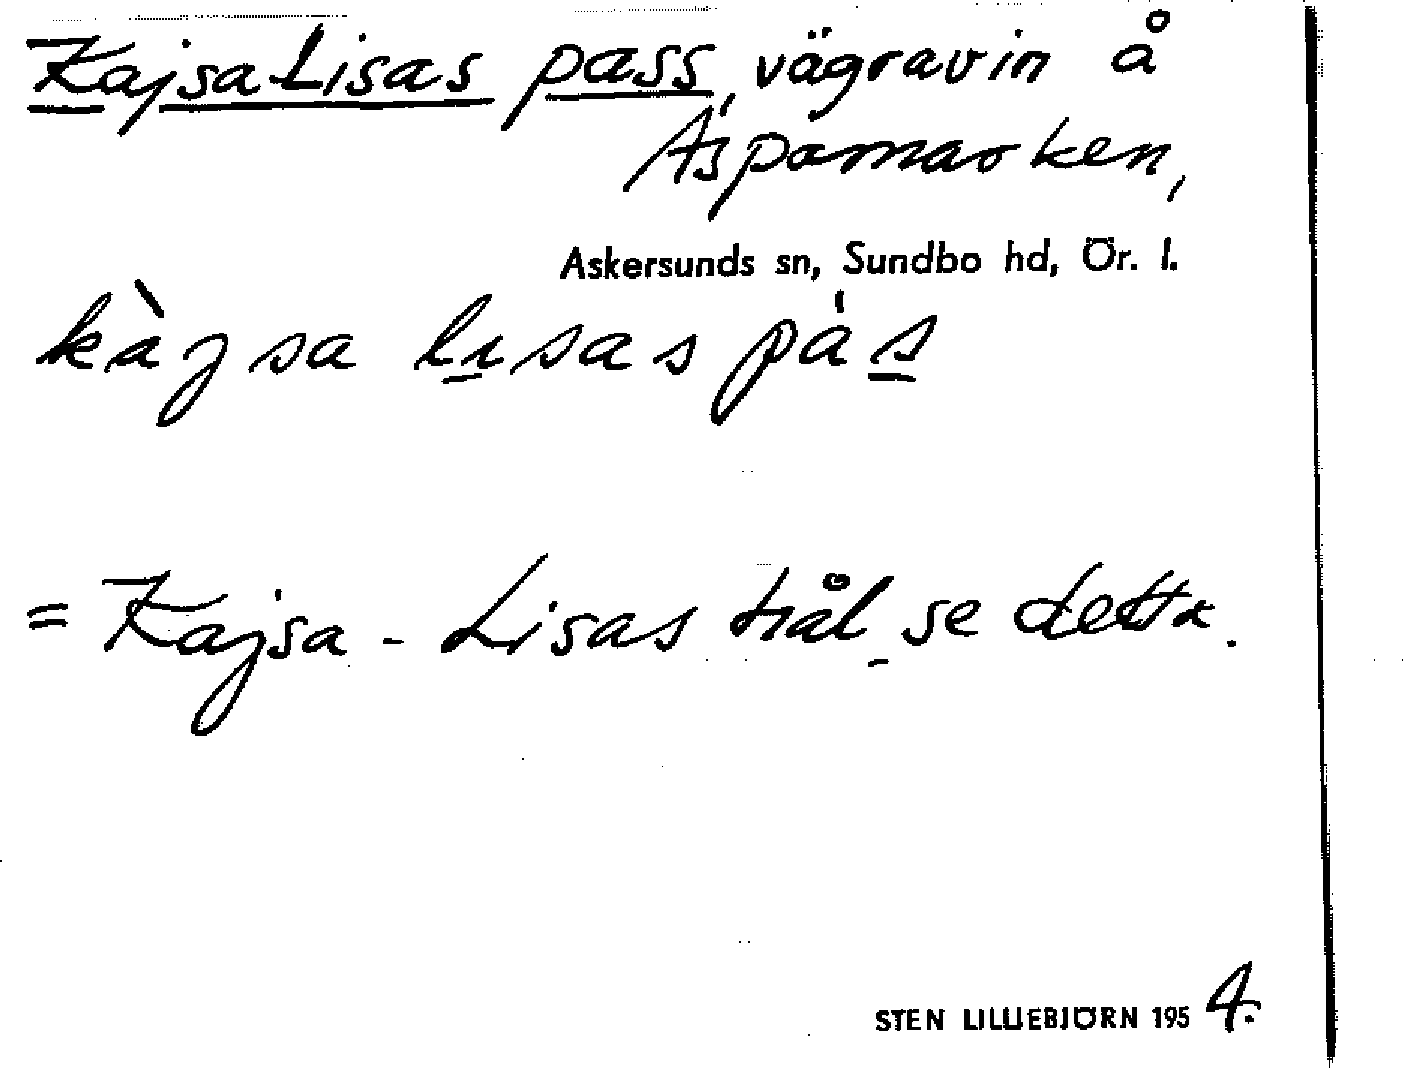 Kajsa Lisas pass, vägravin å
Äspamarken,
Askersunds sn, Sundbo hd, Ör. l.
kàjsa lisas pàs
= Kajsa-Lisas hål se detta.
STEN LILLIEBJÖRN 1954.